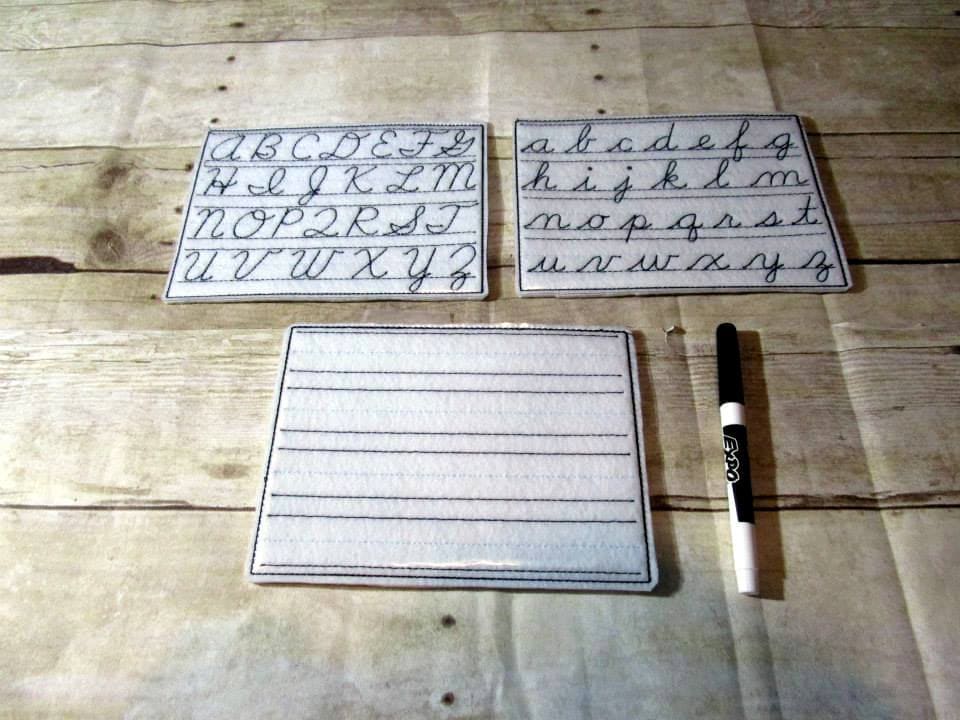 A B C D E F G
H I J K L M
N O P Q R S T
U V W X Y Z
a b c d e f g
h i j k l m
n o p q r s t
u v w x y z
EXPO